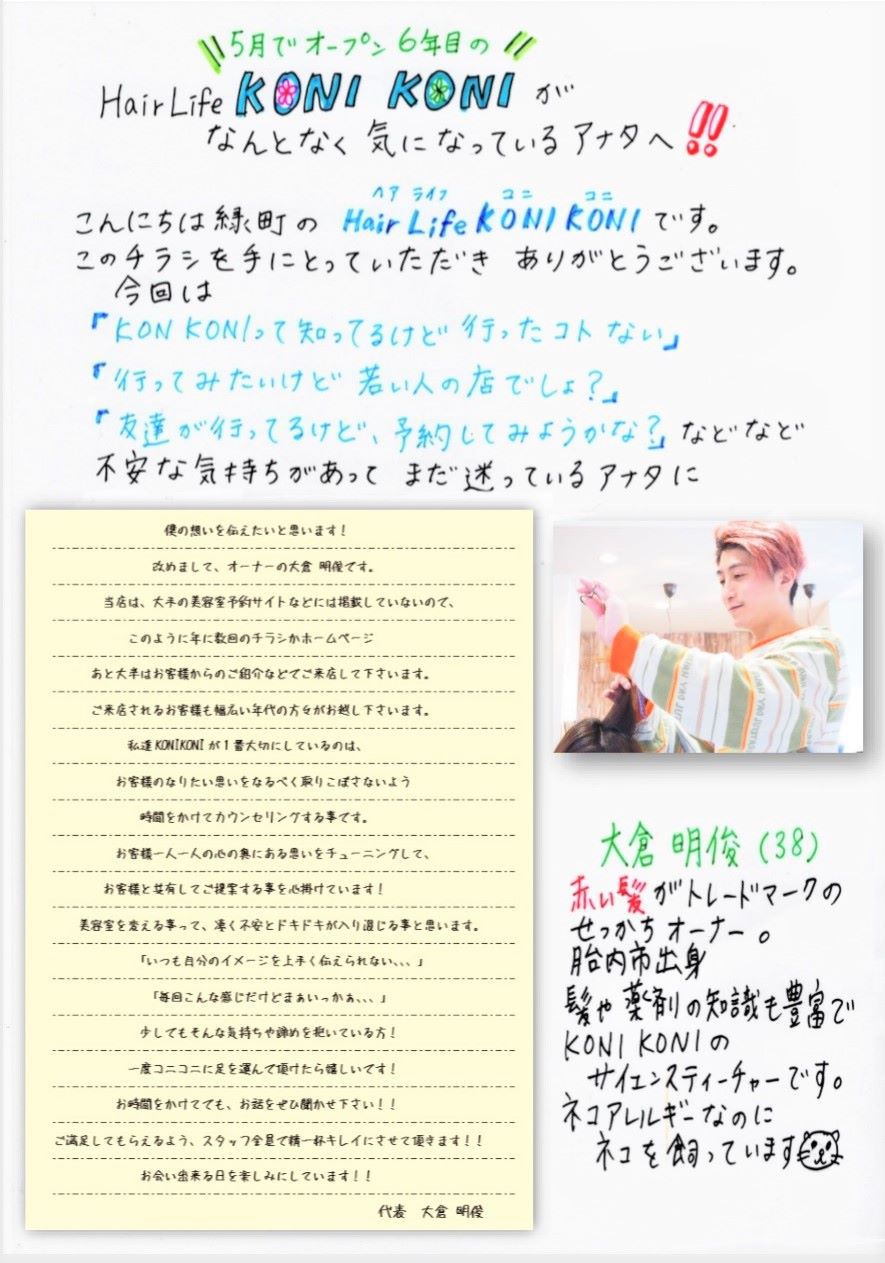 5月でオープン6年目の
Hair Life KONI KONI が
なんとなく気になっているアナタへ!!
ヘア ライフ コニ コニ
こんにちは緑町の Hair Life KONI KONI です。
このチラシを手にとっていただき ありがとうございます。
今回は
『KON KONIって知ってるけど 行ったコトない』
『行ってみたいけど 若い人の店でしょ?』
『友達が行ってるけど、予約してみようかな?』などなど
不安な気持ちがあって まだ迷っているアナタに
僕の想いを伝えたいと思います!
改めまして、オーナーの大倉 明俊です。
当店は、大手の美容室予約サイトなどには掲載していないので、
このように年に数回のチラシかホームページ
あと大半はお客様からのご紹介などでご来店して下さいます。
ご来店されるお客様も幅広い年代の方々がお越し下さいます。
私達KONIKONIが1番大切にしているのは、
お客様のなりたい思いをなるべく取りこぼさないよう
時間をかけてカウンセリングする事です。
お客様一人一人の心の奥にある思いをチューニングして、
お客様と共有してご提案する事を心掛けています!
美容室を変える事って、凄く不安とドキドキが入り混じる事と思います。
「いつも自分のイメージを上手く伝えられない、、、」
「毎回こんな感じだけどまぁいっかぁ、、、」
少してもそんな気持ちや諦めを抱いている方!
一度コニコニに足を運んで頂けたら嬉しいです!
お時間をかけてでも、お話をぜひ聞かせ下さい!!
ご満足してもらえるよう、スタッフ全員で精一杯キレイにさせて頂きます!!
お会い出来る日を楽しみにしています!!
代表 大倉 明俊
大倉 明俊 (38)
赤い髪がトレードマークの
せっかちオーナー。
胎内市出身
髪や薬剤の知識も豊富で
KONI KONIの
サイエンスティーチャーです。
ネコアレルギーなのに
ネコを飼っています